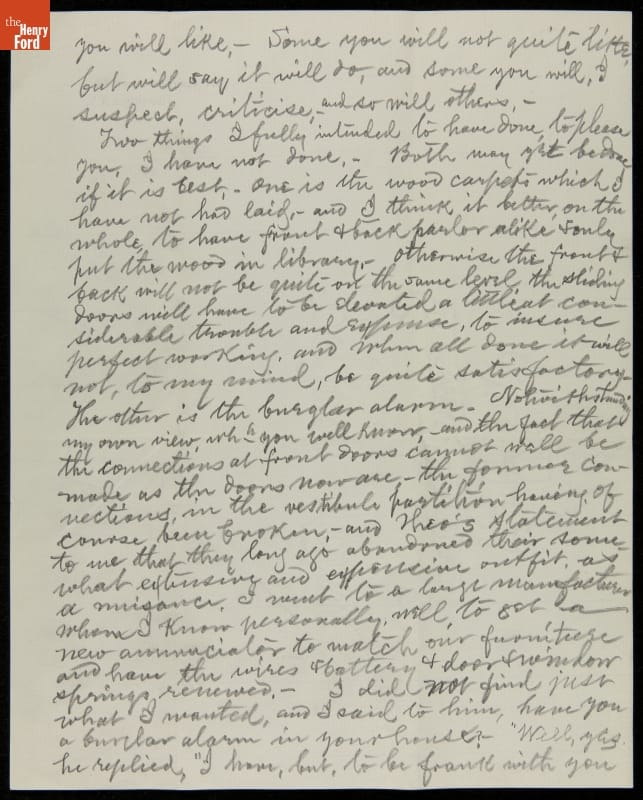 the
Henry
Ford
you will like,- Some you will not quite like,
but will say it will do, and some you will, I
suspect, criticise,- and so will others,-
Two things I fully intended to have done, to please
you, I have not done,- Both may yet be done
if it is best,- One is the wood carpets which I
have not had laid,- and I think it better, on the
whole, to have front & back parlor alike & only
put the wood in library,- otherwise the front &
back will not be quite on the same level, the sliding
doors will have to be elevated a little at con-
siderable trouble and expense, to insure
perfect working, and when all done it will
not, to my mind, be quite satisfactory-
The other is the burglar alarm- Notwithstanding
my own view, wh<sup>h</sup> you well know,- and the fact that
the connections at front doors cannot well be
made as the doors now are,- the former con-
nections, in the vestibule partition having of
course been broken,- and Theo's statement
to me that they long ago abandoned their some-
what extensive and expensive outfit, as
a nuisance, I went to a large manufacturer
whom I know personally, well, to get a
new annunciator to match our furniture
and have the wires & battery & door & window
springs, renewed,- I did not find just
what I wanted, and I said to him, have you
a burglar alarm in your house?- "Well, yes.
he replied, "I have, but, to be frank with you